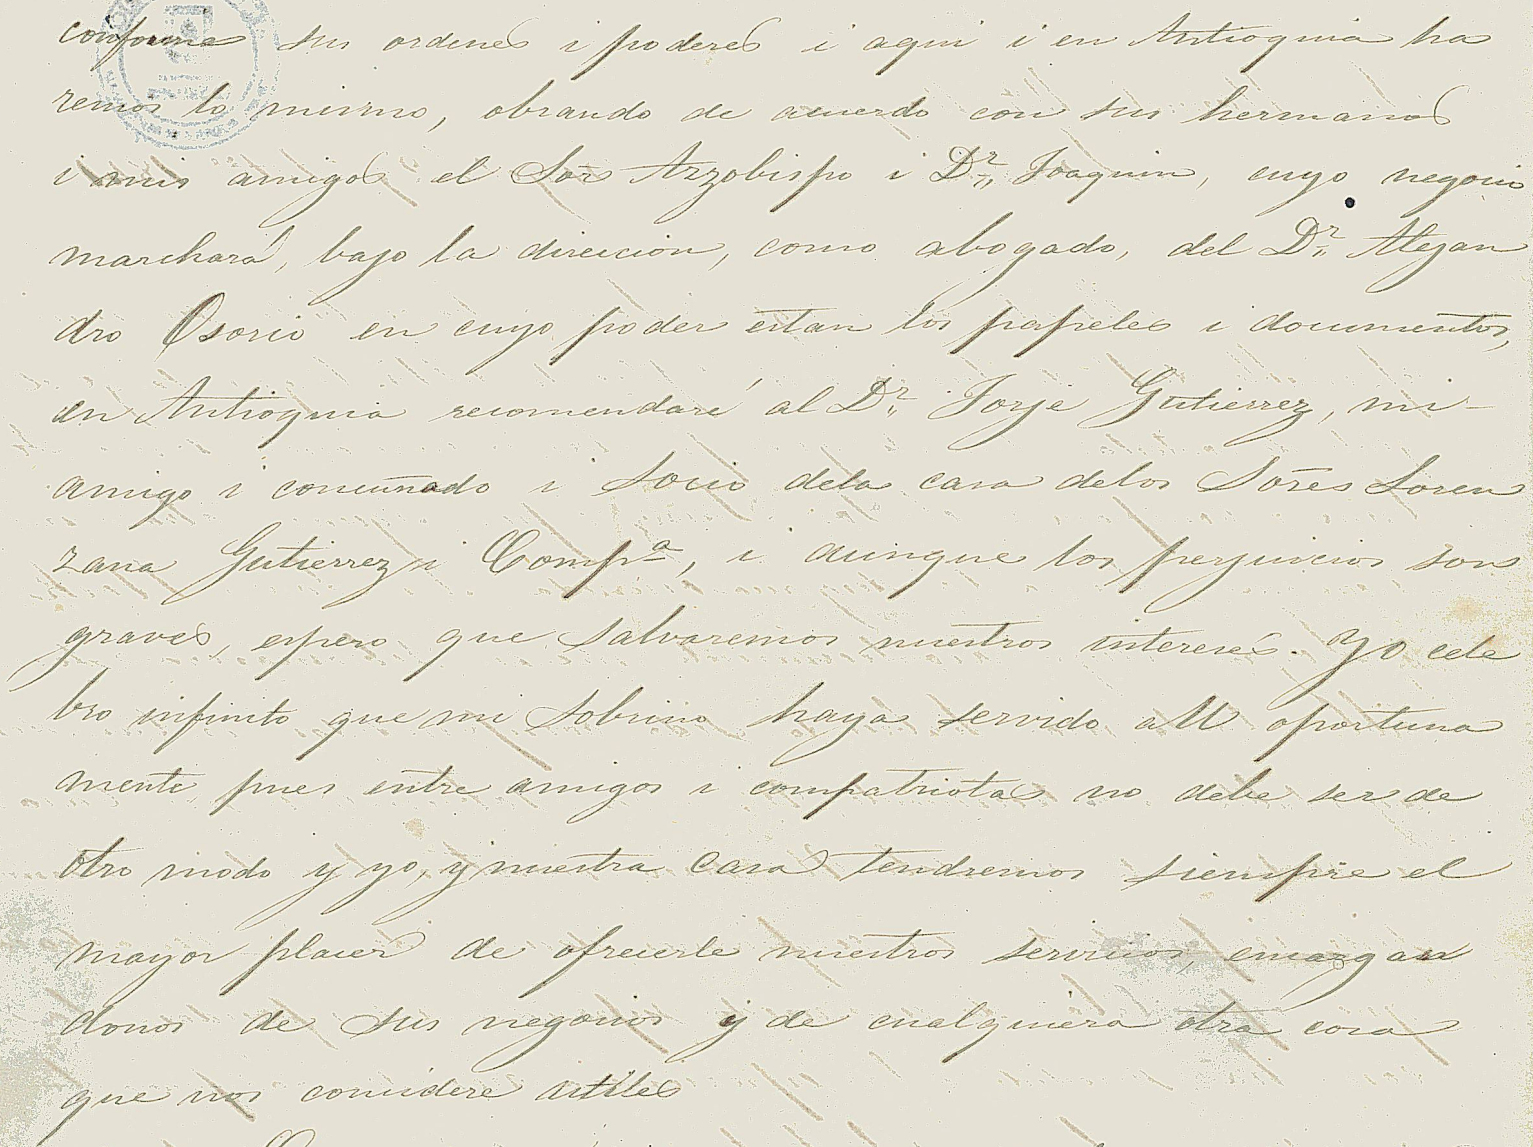 conforme sus ordenes i poderes i aqui i en Antioquia ha
remos lo mismo, obrando de acuerdo con sus hermanos
i mis amigos el Sor Arzobispo i Dr,, Joaquin, cuyo negocio
marchará, bajo la direccion, como abogado, del Dr,, Alejan
dro Osorio en cuyo poder estan los papeles i documentos,
en Antioquia recomendaré al Dr,, Jorje Gutierrez, mi-
amigo i concuñado i socio dela casa delos Sores Loren
zana Gutierrez i Compa, i aunque los perjuicios son
graves, espero que salvaremos nuestros intereses. Yo cele
bro infinito que mi sobrino haya servido a U oportuna
mente pues entre amigos i compatriotas no debe ser de
otro modo y yo, y nuestra casa tendremos siempre el
mayor placer de ofrecerle nuestros servicios, encargan
donos de sus negocios y de cualquiera otra cosa
que nos considere utiles